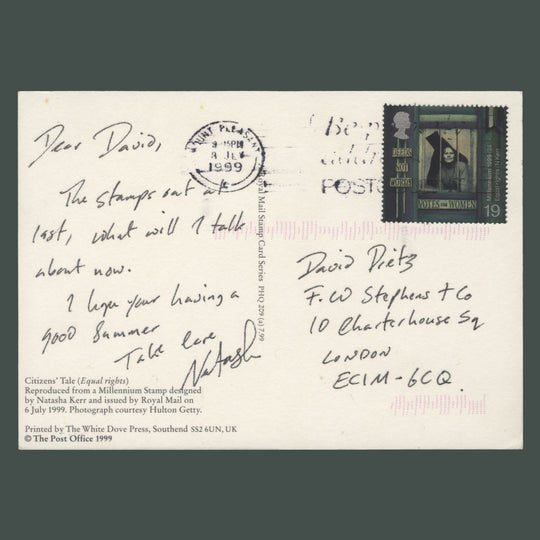 Dear David,
The stamps out at
last, what will I talk
about now.
I hope your having a
good Summer
Take Care
Natasha
Citizens' Tale (Equal rights)
Reproduced from a Millennium Stamp designed
by Natasha Kerr and issued by Royal Mail on
6 July 1999. Photograph courtesy Hulton Getty.
Printed by The White Dove Press, Southend SS2 6UN, UK
© The Post Office 1999
Royal Mail Stamp Card Series PHQ 209 (a) 7.99
MOUNT PLEASANT
1999
POST
DEEDS
NOT
WORDS
VOTES FOR WOMEN
19
Millennium 1999
Equal rights N Kerr
David Dietz
F.W Stephens + Co
10 Charterhouse Sq
LONDON
EC1M-6CQ.